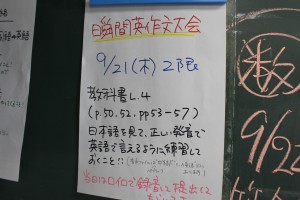 瞬間英作文大会
9/21(木)2限
教科書L.4
(p.50,52,pp53-57)
日本語を見て、正しい発音で
英語で言えるように練習して
おくこと!!
当日はロイロで録音して提出して
数
9/2